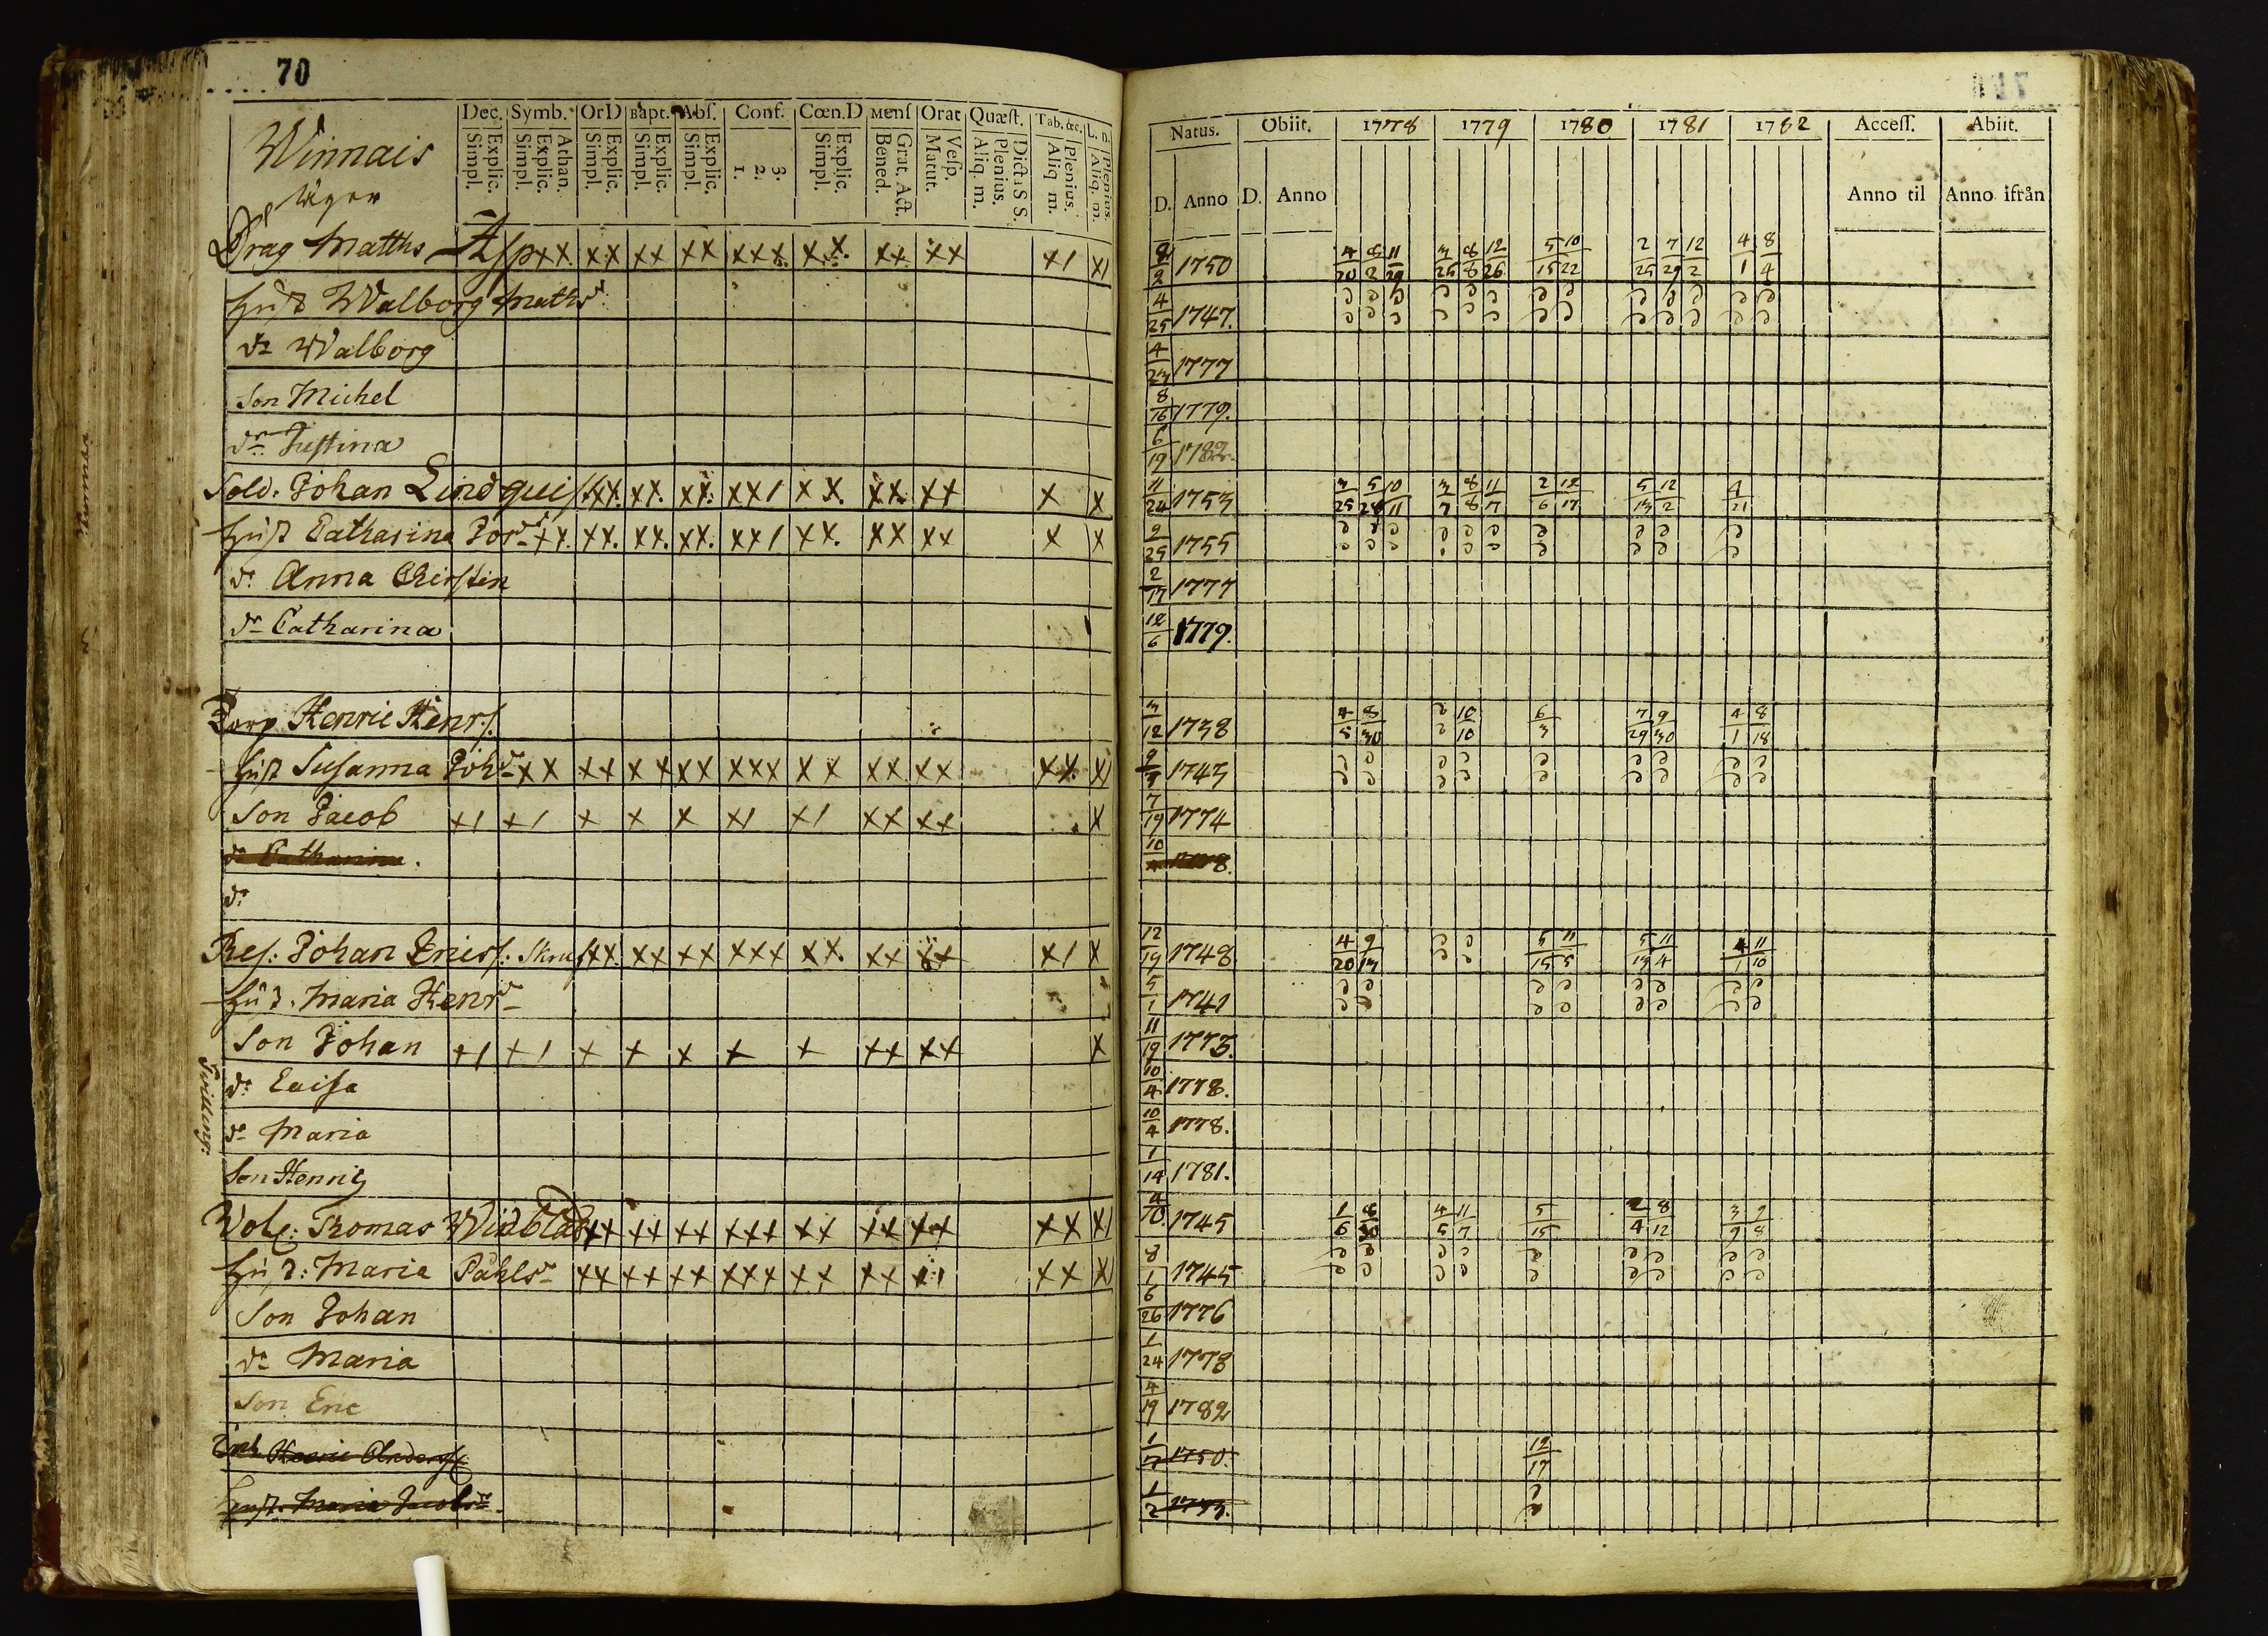 70
Dec. Symb. OrD Bapt. Abſ. Conf. Cœn.D Menſ Orat Quæſt. Tab. &c. L. n.
Explic. Simpl. Athan. Explic. Simpl. Explic. Simpl. Explic. Simpl. Explic. Simpl. 3. 2. 1. Explic. Simpl. Grat. Act. Bened. Veſp. Matut. Dicta S S. Plenius. Aliq. m. Plenius. Aliq. m. Plenius. Aliq. m.
Natus. Obiit. 1778 1779 1780 1781 1782 Acceſſ. Abiit.
D. Anno D. Anno Anno til Anno ifrån
Winnais
läger
Drag Matths xx xx xx xx xxx xx xx xx x1 x1 8/9 1750 4/20 8/2 11/29 3/25 8/8 12/26 5/15 10/22 2/25 7/29 12/2 4/1 8/4
Hust Walborg Mathsdr 4/25 1747.
dr Walborg 4/23 1777
Son Michel 8/16 1779.
dr Justina 6/19 1782.
Sold. Johan Lindquist xx. xx. xx. xx1 xx. xx xx x x 11/24 1753 3/25 5/24 10/11 3/7 8/8 11/17 2/6 12/17 5/13 12/2 4/21
Hust Catharina Jordr xx. xx. xx. xx. xx1 xx. xx xx x x 9/25 1755
dr Anna Chirstin 2/17 1777
dr Catharina 12/6 1779.
Torp Henric Henrs. 3/12 1738 4/5 8/30 2/2 10/10 6/3 7/29 9/30 4/1 8/18
Hust Susanna Johdr xx xx xx xx xxx xx xx xx xx x1 9/9 1743
Son Jacob x1 x1 x x x x1 x1 xx xx x 7/19 1774
dr Catharina. 10
dr
Res: Johan Ericss: Skruf xx. xx xx xxx xx. xx xx x1 x 12/19 1748 4/20 9/13 5/15 11/5 5/13 11/4 4/1 11/10
Hu d. Maria Henrdr 5/1 1741
Son Johan x1 x1 x x x x x xx xx x 11/19 1773.
Twilling:
dr Laisa 10/4 1778.
dr Maria 10/4 1778.
Son Henric 1/14 1781.
Thomas Widblad xx xx xx xxx xx xx xx xx x1 4/10 1745 1/6 8/30 4/5 11/7 5/15 2/4 8/12 3/9 9/8
Hu d: Maria Påhlsdr xx xx xx xxx xx xx x1 xx x1 8/1 1745
Son Johan 6/26 1776
dr Maria 1/24 1778
Son Eric 4/19 1782
Inh Henric Anderss 1/7 1750. 12/17
Hust. Maria Jacobsdr. 1/2 1753.